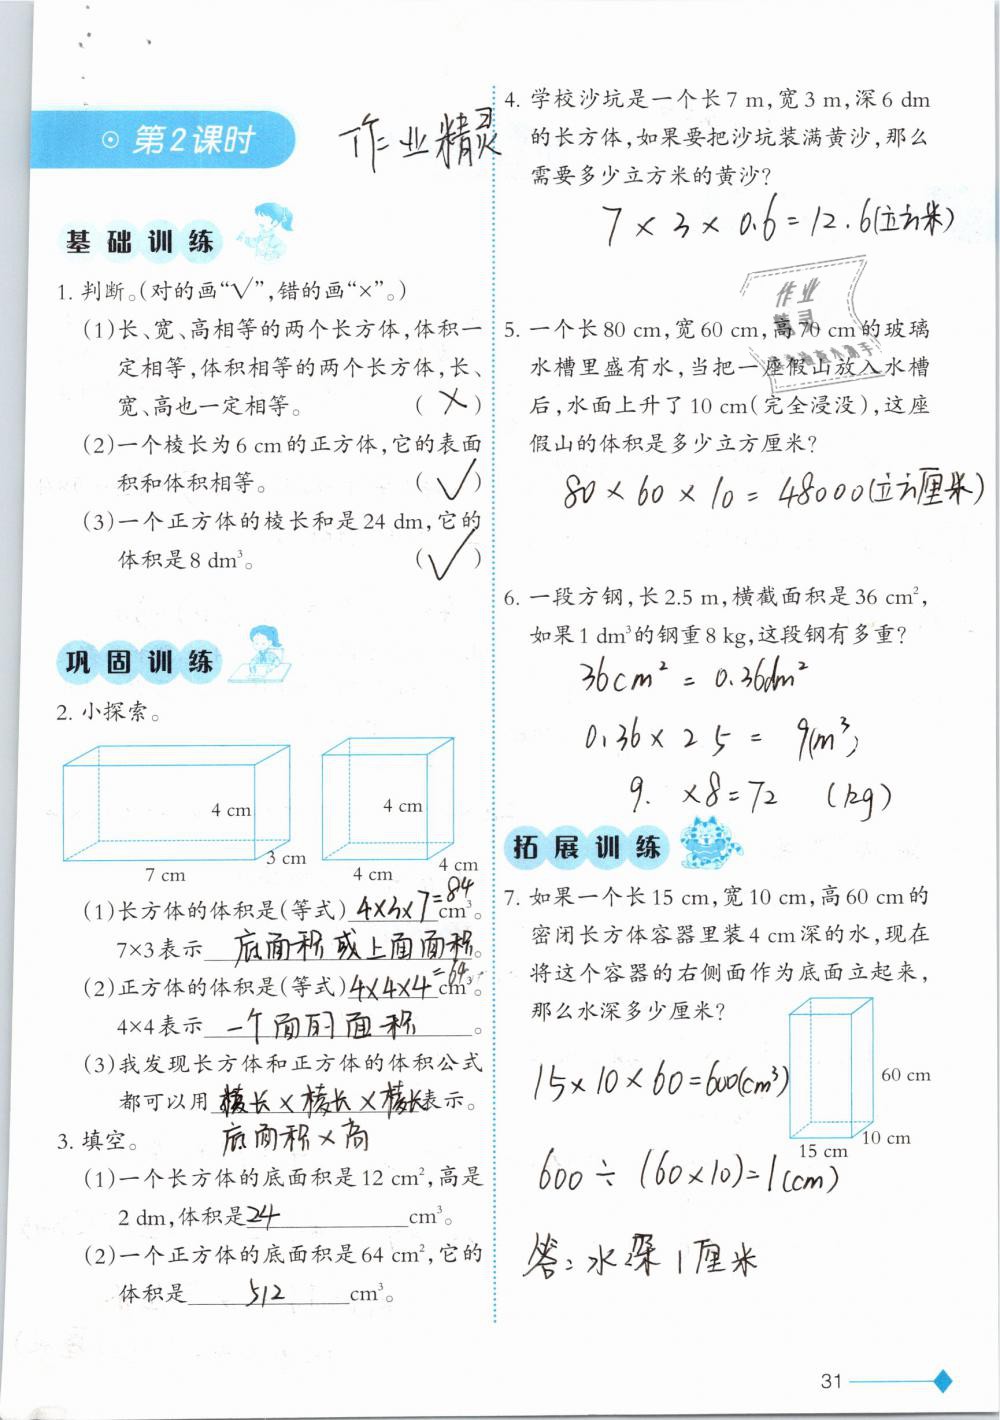 第2课时
作业精灵
基础训练
1. 判断。(对的画“√”,错的画“×”。)
(1)长、宽、高相等的两个长方体,体积一
定相等,体积相等的两个长方体,长、
宽、高也一定相等。 ( × )
(2)一个棱长为6 cm的正方体,它的表面
积和体积相等。 ( √ )
(3)一个正方体的棱长和是24 dm,它的
体积是8 dm³。 ( √ )
巩固训练
2. 小探索。
4 cm
3 cm
7 cm
4 cm
4 cm
4 cm
(1)长方体的体积是(等式) 4×3×7=84 cm³。
7×3表示 底面积或上面面积。
(2)正方体的体积是(等式) 4×4×4=64 cm³。
4×4表示 一个面的面积 。
(3)我发现长方体和正方体的体积公式
都可以用 棱长×棱长×棱长 表示。
底面积×高
3. 填空。
(1)一个长方体的底面积是12 cm²,高是
2 dm,体积是 24 cm³。
(2)一个正方体的底面积是64 cm²,它的
体积是 512 cm³。
4. 学校沙坑是一个长7 m,宽3 m,深6 dm
的长方体,如果要把沙坑装满黄沙,那么
需要多少立方米的黄沙?
7×3×0.6=12.6(立方米)
作业
精灵
5. 一个长80 cm,宽60 cm,高70 cm的玻璃
水槽里盛有水,当把一座假山放入水槽
后,水面上升了10 cm(完全浸没),这座
假山的体积是多少立方厘米?
80×60×10=48000(立方厘米)
6. 一段方钢,长2.5 m,横截面积是36 cm²,
如果1 dm³的钢重8 kg,这段钢有多重?
36cm²=0.36dm²
0.36×25=9(m³)
9.×8=72 (kg)
拓展训练
7. 如果一个长15 cm,宽10 cm,高60 cm的
密闭长方体容器里装4 cm深的水,现在
将这个容器的右侧面作为底面立起来,
那么水深多少厘米?
15×10×60=600(cm³)
60 cm
10 cm
15 cm
600÷(60×10)=1(cm)
答:水深1厘米
31